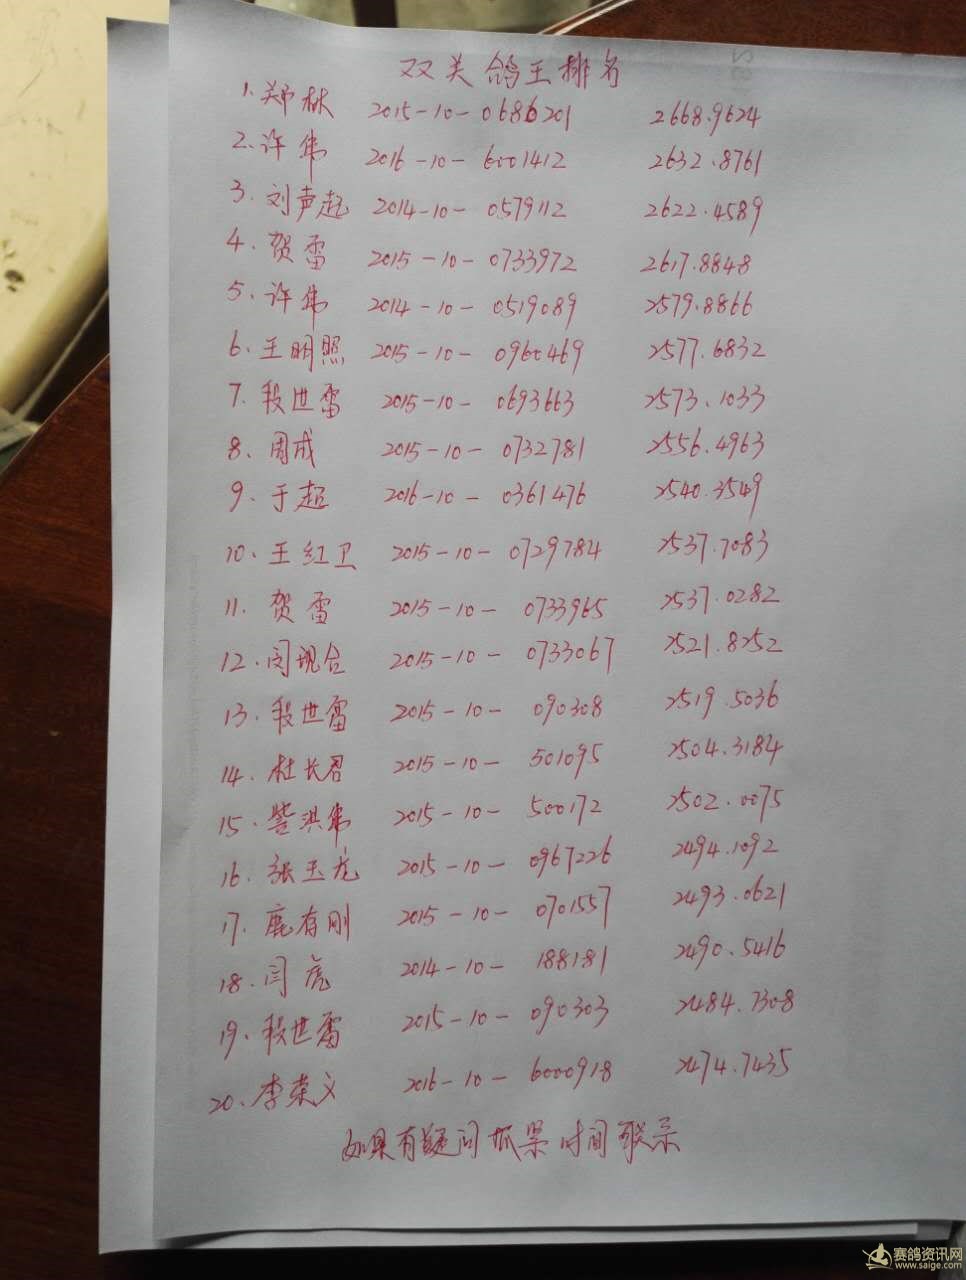 双关鸽王排名
1. 郑林 2015-10-0686201 2668.9624
2. 许伟 2016-10-6001412 2632.8761
3. 刘声赶 2014-10-0579112 2622.4589
4. 贺雷 2015-10-0733972 2617.8848
5. 许伟 2014-10-0519089 2579.8866
6. 王明照 2015-10-0960469 2577.6832
7. 段世雷 2015-10-0693663 2573.1033
8. 周成 2015-10-0732781 2556.4963
9. 于超 2016-10-0361476 2540.3549
10. 王红卫 2015-10-0729784 2537.7083
11. 贺雷 2015-10-0733965 2537.0282
12. 闫现合 2015-10-0733067 2521.8252
13. 段世雷 2015-10-090308 2519.5036
14. 杜长君 2015-10-501095 2504.3184
15. 洪伟 2015-10-500172 2502.0075
16. 张玉龙 2015-10-0967226 2494.1092
17. 鹿存刚 2015-10-0701557 2493.0621
18. 闫虎 2014-10-188181 2490.5416
19. 段世雷 2015-10-090303 2484.7308
20. 李荣义 2016-10-6000918 2474.7435
如果有疑问抓紧时间联系
赛鸽资讯网
www.saige.com